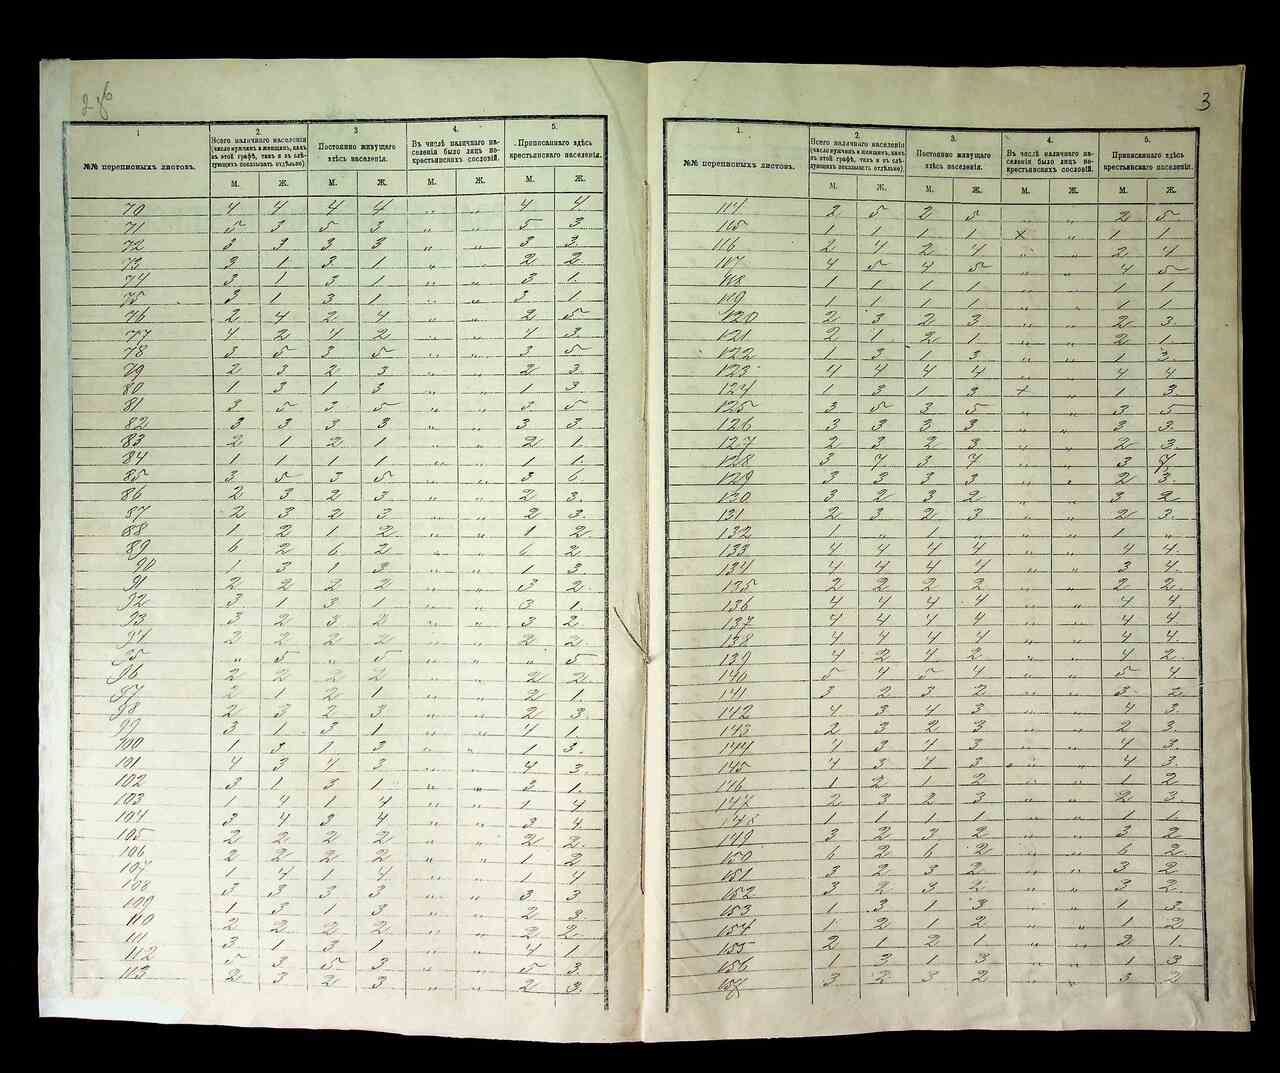 3
1
2.
3
4.
5.
№№ переписныхъ листовъ.
Всего наличнаго населенія (число мужчин и женщин, какъ въ этой графѣ, такъ и въ слѣдующихъ показывать отдѣльно).
Постоянно живущаго здѣсь населенія.
Въ числѣ наличнаго населенія было лицъ некрестьянскихъ сословій.
Приписаннаго здѣсь крестьянскаго населенія.
М. Ж. М. Ж. М. Ж. М. Ж.
70 4 4 4 4 „ „ 4 4
71 5 3 5 3 „ „ 5 3
72 3 3 3 3 „ „ 3 3
73 3 1 3 1 „ „ 2 2
74 3 1 3 1 „ „ 3 1
75 3 1 3 1 „ „ 3 1
76 2 4 2 4 „ „ 2 5
77 4 2 4 2 „ „ 4 3
78 3 5 3 5 „ „ 3 5
79 2 3 2 3 „ „ 2 3
80 1 3 1 3 „ „ 1 3
81 3 5 3 5 „ „ 3 5
82 3 3 3 3 „ „ 3 3
83 2 1 2 1 „ „ 2 1
84 1 1 1 1 „ „ 1 1
85 3 5 3 5 „ „ 3 6
86 2 3 2 3 „ „ 2 3
87 2 3 2 3 „ „ 2 3
88 1 2 1 2 „ „ 1 2
89 6 2 6 2 „ „ 6 2
90 1 3 1 3 „ „ 1 3
91 2 2 2 2 „ „ 3 2
92 3 1 3 1 „ „ 3 1
93 3 2 3 2 „ „ 3 2
94 2 2 2 2 „ „ 2 2
95 „ 5 „ 5 „ „ „ 5
96 2 2 2 2 „ „ 2 2
97 2 1 2 1 „ „ 2 1
98 2 3 2 3 „ „ 2 3
99 3 1 3 1 „ „ 4 1
100 1 3 1 3 „ „ 1 3
101 4 3 4 3 „ „ 4 3
102 3 1 3 1 „ „ 3 1
103 1 4 1 4 „ „ 1 4
104 3 4 3 4 „ „ 3 4
105 2 2 2 2 „ „ 2 2
106 2 2 2 2 „ „ 1 2
107 1 4 1 4 „ „ 1 4
108 3 3 3 3 „ „ 3 3
109 1 3 1 3 „ „ 2 3
110 2 2 2 2 „ „ 2 2
111 3 1 3 1 „ „ 4 1
112 5 3 5 3 „ „ 5 3
113 2 3 2 3 „ „ 2 3
1.
2.
3.
4.
5.
№№ переписныхъ листовъ.
Всего наличнаго населенія (число мужчин и женщин, какъ въ этой графѣ, такъ и въ слѣдующихъ показывать отдѣльно).
Постоянно живущаго здѣсь населенія.
Въ числѣ наличнаго населенія было лицъ некрестьянскихъ сословій.
Приписаннаго здѣсь крестьянскаго населенія.
М. Ж. М. Ж. М. Ж. М. Ж.
114 2 5 2 5 „ „ 2 5
115 1 1 1 1 x „ 1 1
116 2 4 2 4 „ „ 2 4
117 4 5 4 5 „ „ 4 5
118 1 1 1 1 „ „ 1 1
119 1 1 1 1 „ „ 1 1
120 2 3 2 3 „ „ 2 3
121 2 1 2 1 „ „ 2 1
122 1 3 1 3 „ „ 1 3
123 4 4 4 4 „ „ 4 4
124 1 3 1 3 + „ 1 3
125 3 5 3 5 „ „ 3 5
126 3 3 3 3 „ „ 3 3
127 2 3 2 3 „ „ 2 3
128 3 7 3 7 „ „ 3 7
129 3 3 3 3 „ „ 2 3
130 3 2 3 2 „ „ 3 2
131 2 3 2 3 „ „ 2 3
132 1 „ 1 „ „ „ 1 „
133 4 4 4 4 „ „ 4 4
134 4 4 4 4 „ „ 3 4
135 2 2 2 2 „ „ 2 2
136 4 4 4 4 „ „ 4 4
137 4 4 4 4 „ „ 4 4
138 4 4 4 4 „ „ 4 4
139 4 2 4 2 „ „ 4 2
140 5 4 5 4 „ „ 5 4
141 3 2 3 2 „ „ 3 2
142 4 3 4 3 „ „ 4 3
143 2 3 2 3 „ „ 2 3
144 4 3 4 3 „ „ 4 3
145 4 3 4 3 „ „ 4 3
146 1 2 1 2 „ „ 1 2
147 2 3 2 3 „ „ 2 3
148 1 1 1 1 „ „ 1 1
149 3 2 3 2 „ „ 3 2
150 6 2 6 2 „ „ 6 2
151 3 2 3 2 „ „ 3 2
152 3 2 3 2 „ „ 3 2
153 1 3 1 3 „ „ 1 3
154 1 2 1 2 „ „ 1 2
155 2 1 2 1 „ „ 2 1
156 1 3 1 3 „ „ 1 3
157 3 2 3 2 „ „ 3 2